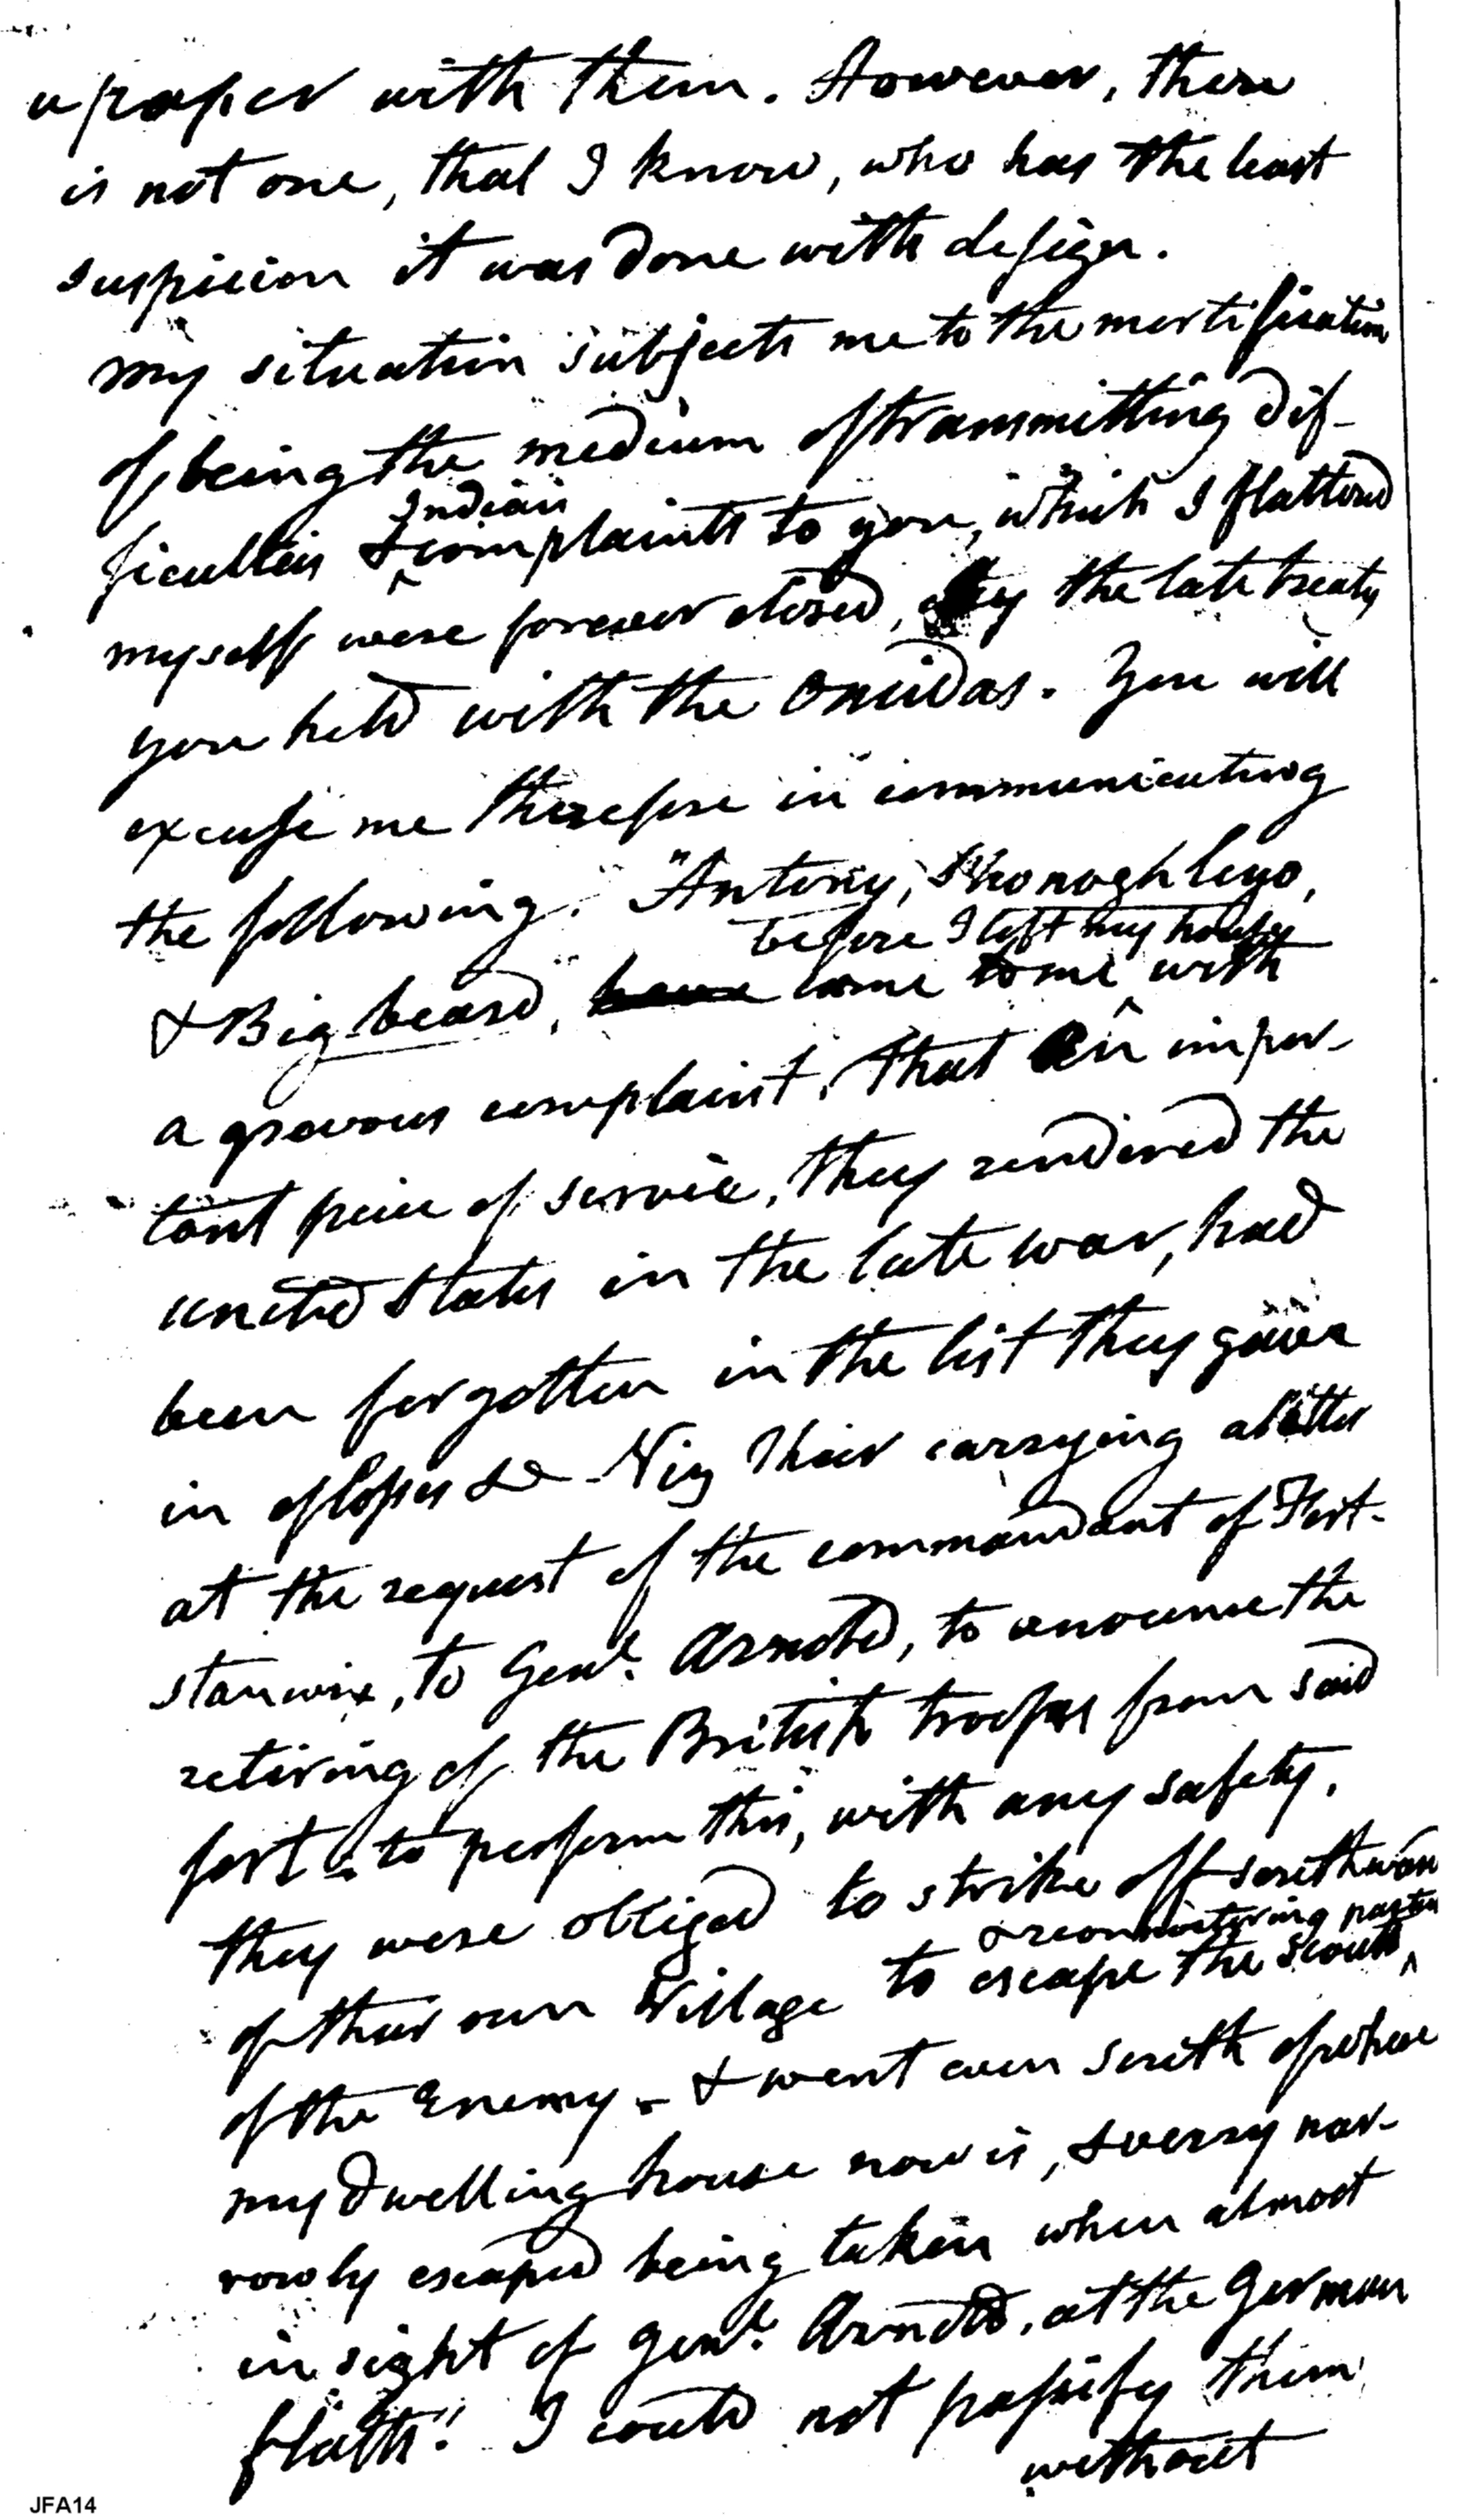 a paper with them. However, there
is not one, that I know, who has the least
suspicion it was done with design.
my situation subjects me to the mortification
of being the medium of transmitting dif-
Indian
ficulties & complaints to you, which I flattered
myself were forever closed, by the late treaty
you held with the Oneidas. You will
excuse me therefore in communicating
the following. "Antony,
before I left my house
& Big beard, have come to me with
a grevous complaint, that an impor-
tant peice of service, they rendered the
united States in the late war, had
been forgotten in the list they gave
in of losses & their carrying a letter
at the request of the commandant of Fort-
stanwix, to Genl. Arnold, to anounce the
retiring of the British troops from said
fort - to perform this, with any safety,
they were obliged to strike off southward
& reconnoitering parties
of their own Village to escape the scouts
of the Enemy - & went even south of where
my dwelling house now is, & verry nar-
rowly escaped being taken when almost
in sight of Genl. Arnold, at the German
flatts." I could not passify them
without
JFA14